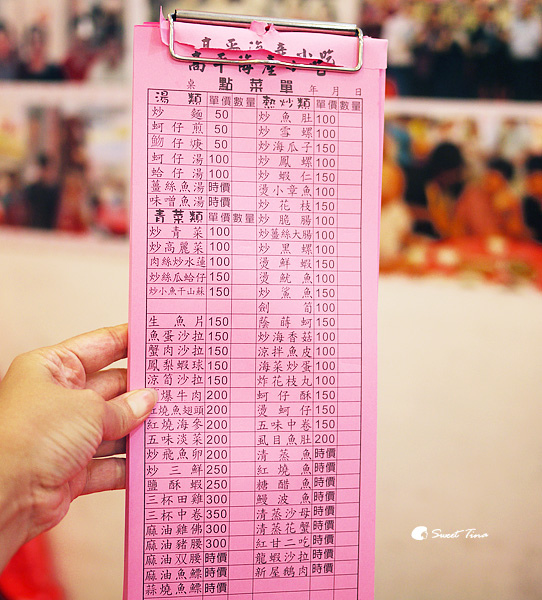 高平海產小吃
桌 點菜單 年 月 日
湯類 單價 數量 熱炒類 單價 數量
炒麵 50 炒魚肚 100
蚵仔煎 50 炒雪螺 100
魩仔焿 50 炒海瓜子 150
蚵仔湯 100 炒鳳螺 100
蛤仔湯 100 炒蝦仁 150
薑絲魚湯 時價 燙小章魚 150
味噌魚湯 時價 炒花枝 150
青菜類 單價 數量 炒脆腸 100
炒青菜 100 炒薑絲大腸 100
炒高麗菜 100 炒黑螺 100
肉絲炒水蓮 100 燙鮮蝦 150
炒絲瓜蛤仔 150 燙魷魚 150
炒小魚干山蘇 150 炒鯊魚 150
劍筍 100
生魚片 150 蔭蒔蚵 150
魚蛋沙拉 150 炒海香菇 100
蟹肉沙拉 150 涼拌魚皮 100
鳳梨蝦球 150 海菜炒蛋 100
涼筍沙拉 150 炸花枝丸 100
爆牛肉 200 蚵仔酥 150
紅燒魚翅頭 200 燙蚵仔 150
紅燒海參 200 五味中卷 150
五味淡菜 200 虱目魚肚 200
炒飛魚卵 200 清蒸魚 時價
炒三鮮 250 紅燒魚 時價
鹽酥蝦 250 糖醋魚 時價
三杯田雞 300 鰻波魚 時價
三杯中卷 350 清蒸沙母 時價
麻油雞佛 300 清蒸花蟹 時價
麻油豬腰 300 紅甘二吃 時價
麻油双腰 時價 龍蝦沙拉 時價
麻油魚鰾 時價 新屋鵝肉 時價
蒜燒魚鰾 時價
Sweet Tina